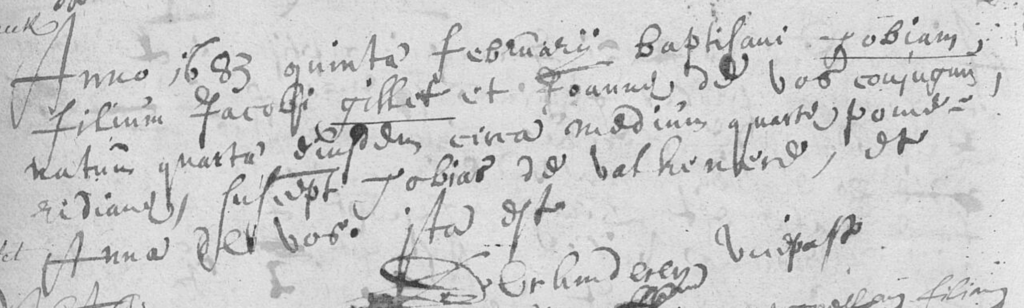 Anno 1683 quinta februarii baptisavi Tobiam,
filium Jacobi gillet et Joannæ de vos conjugum,
natum quarta eiusdem circa medium quartæ pome-
ridianæ, suscept Tobias de valkenere, et
Anna de vos. ita est
vicepast
filium